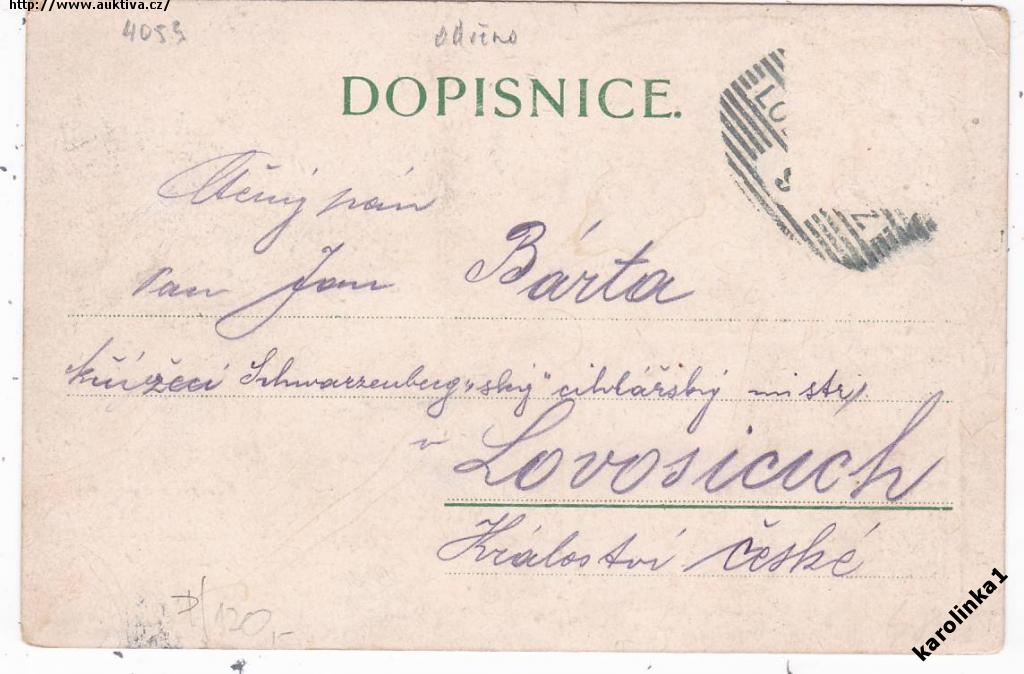 http://www.auktiva.cz/
4053
DOPISNICE.
Ctěný pán
Pan Jan Bárta
knížecí Schwarzenberg„ský" cihlářský mistr
v Lovosicich
Království české
120
karolinka1